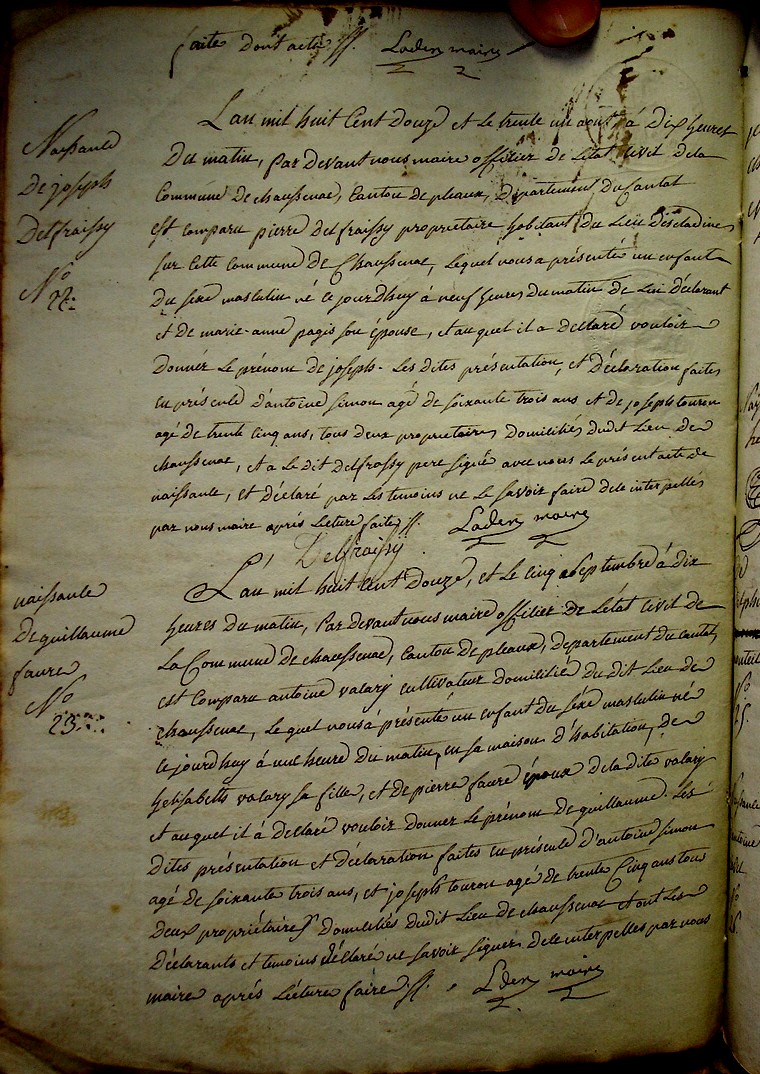 faite dont acte ff. Laden maire
Naissance
De joseph
Delfraissy
No
22.
Lan mil huit Cent Douze et Le trente un aout à Dix heures
Du matin, Par Devant nous maire offitier De Létat Civil Dela
Commune De chaussenac, Canton De pleaux, Département Du Cantal
est comparu pierre Delfraissy proprietaire habitant Du Lieu Descledines
sur Cette Commune De Chaussenac, Lequel nous a présenté un enfant
Du sexe masculin né Ce jourdhuy à neuf heures Du matin De Lui Déclarant
et De marie-anne pagis son épouse, et auquel il a Declaré vouloir
Donner Le prénom De joseph. Les Dites présentation, et Déclaration faites
en présence D'antoine simon agé De soixante trois ans et De joseph touron
agé De trente Cinq ans, tous Deux proprietaires Domiciliés Dudit Lieu De
chaussenac, et a Le Dit Delfrassy pere signé avec nous Le présent acte De
naissance, et Déclaré par Les temoins ne Le savoir faire De ce interpellés
par nous maire après Lecture faite ff. Laden maire
Delfraissy
naissance
De guillaume
faure
No
23
L'an mil huit Cent Douze, et Le Cinq Septembre à Dix
heures Du matin, Par Devant nous maire offitier De Létat Civil De
La Commune De chaussenac, Canton De pleaux, Département Du Cantal,
est Comparu antoine valary cultivateur Domicilié Du Dit Lieu De
chaussenac, Le quel nous à présenté un enfant Du séxe masculin né
Ce jourdhuy á une heure Du matin, en sa maison D'habitation, De
helisabeth valary sa fille, et De pierre faure époux Dela Dite valary
et auquel il á Declaré vouloir Donner Le prénom De guillaume. Les
Dites présentation et Déclaration faites en présence D'antoine simon
agé De soixante trois ans, et joseph touron agé De trente Cinq ans tous
Deux propriétaires Domiciliés Dudit Lieu De chaussenac et ont Les
Déclarants et temoins Déclaré ne savoir signer De ce interpelles par nous
maire après Lécture faire ff. Laden maire